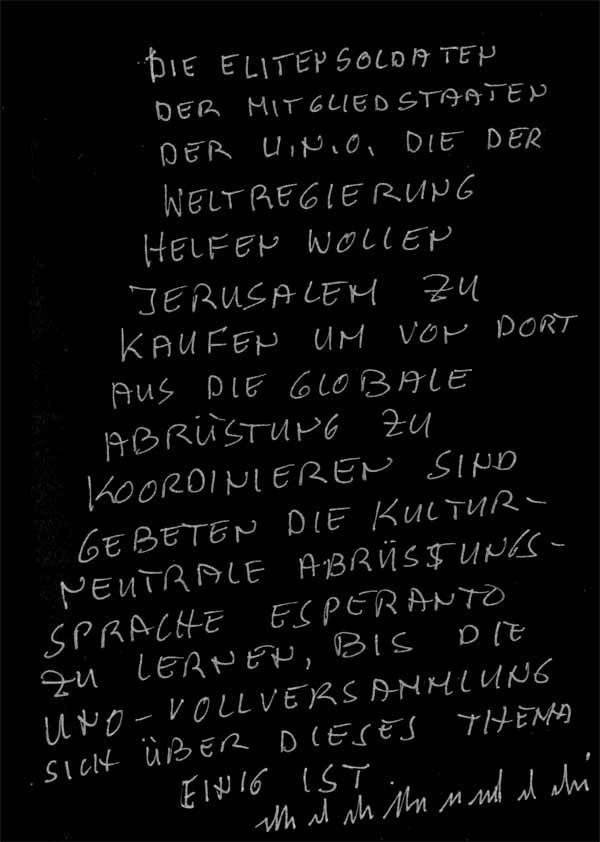 DIE ELITENSOLDATEN
DER MITGLIEDSTAATEN
DER U.N.O. DIE DER
WELTREGIERUNG
HELFEN WOLLEN
JERUSALEM ZU
KAUFEN UM VON DORT
AUS DIE GLOBALE
ABRÜSTUNG ZU
KOORDINIEREN SIND
GEBETEN DIE KULTUR-
NEUTRALE ABRÜSTUNGS-
SPRACHE ESPERANTO
ZU LERNEN, BIS DIE
UNO-VOLLVERSAMMLUNG
SICH ÜBER DIESES THEMA
EINIG IST.